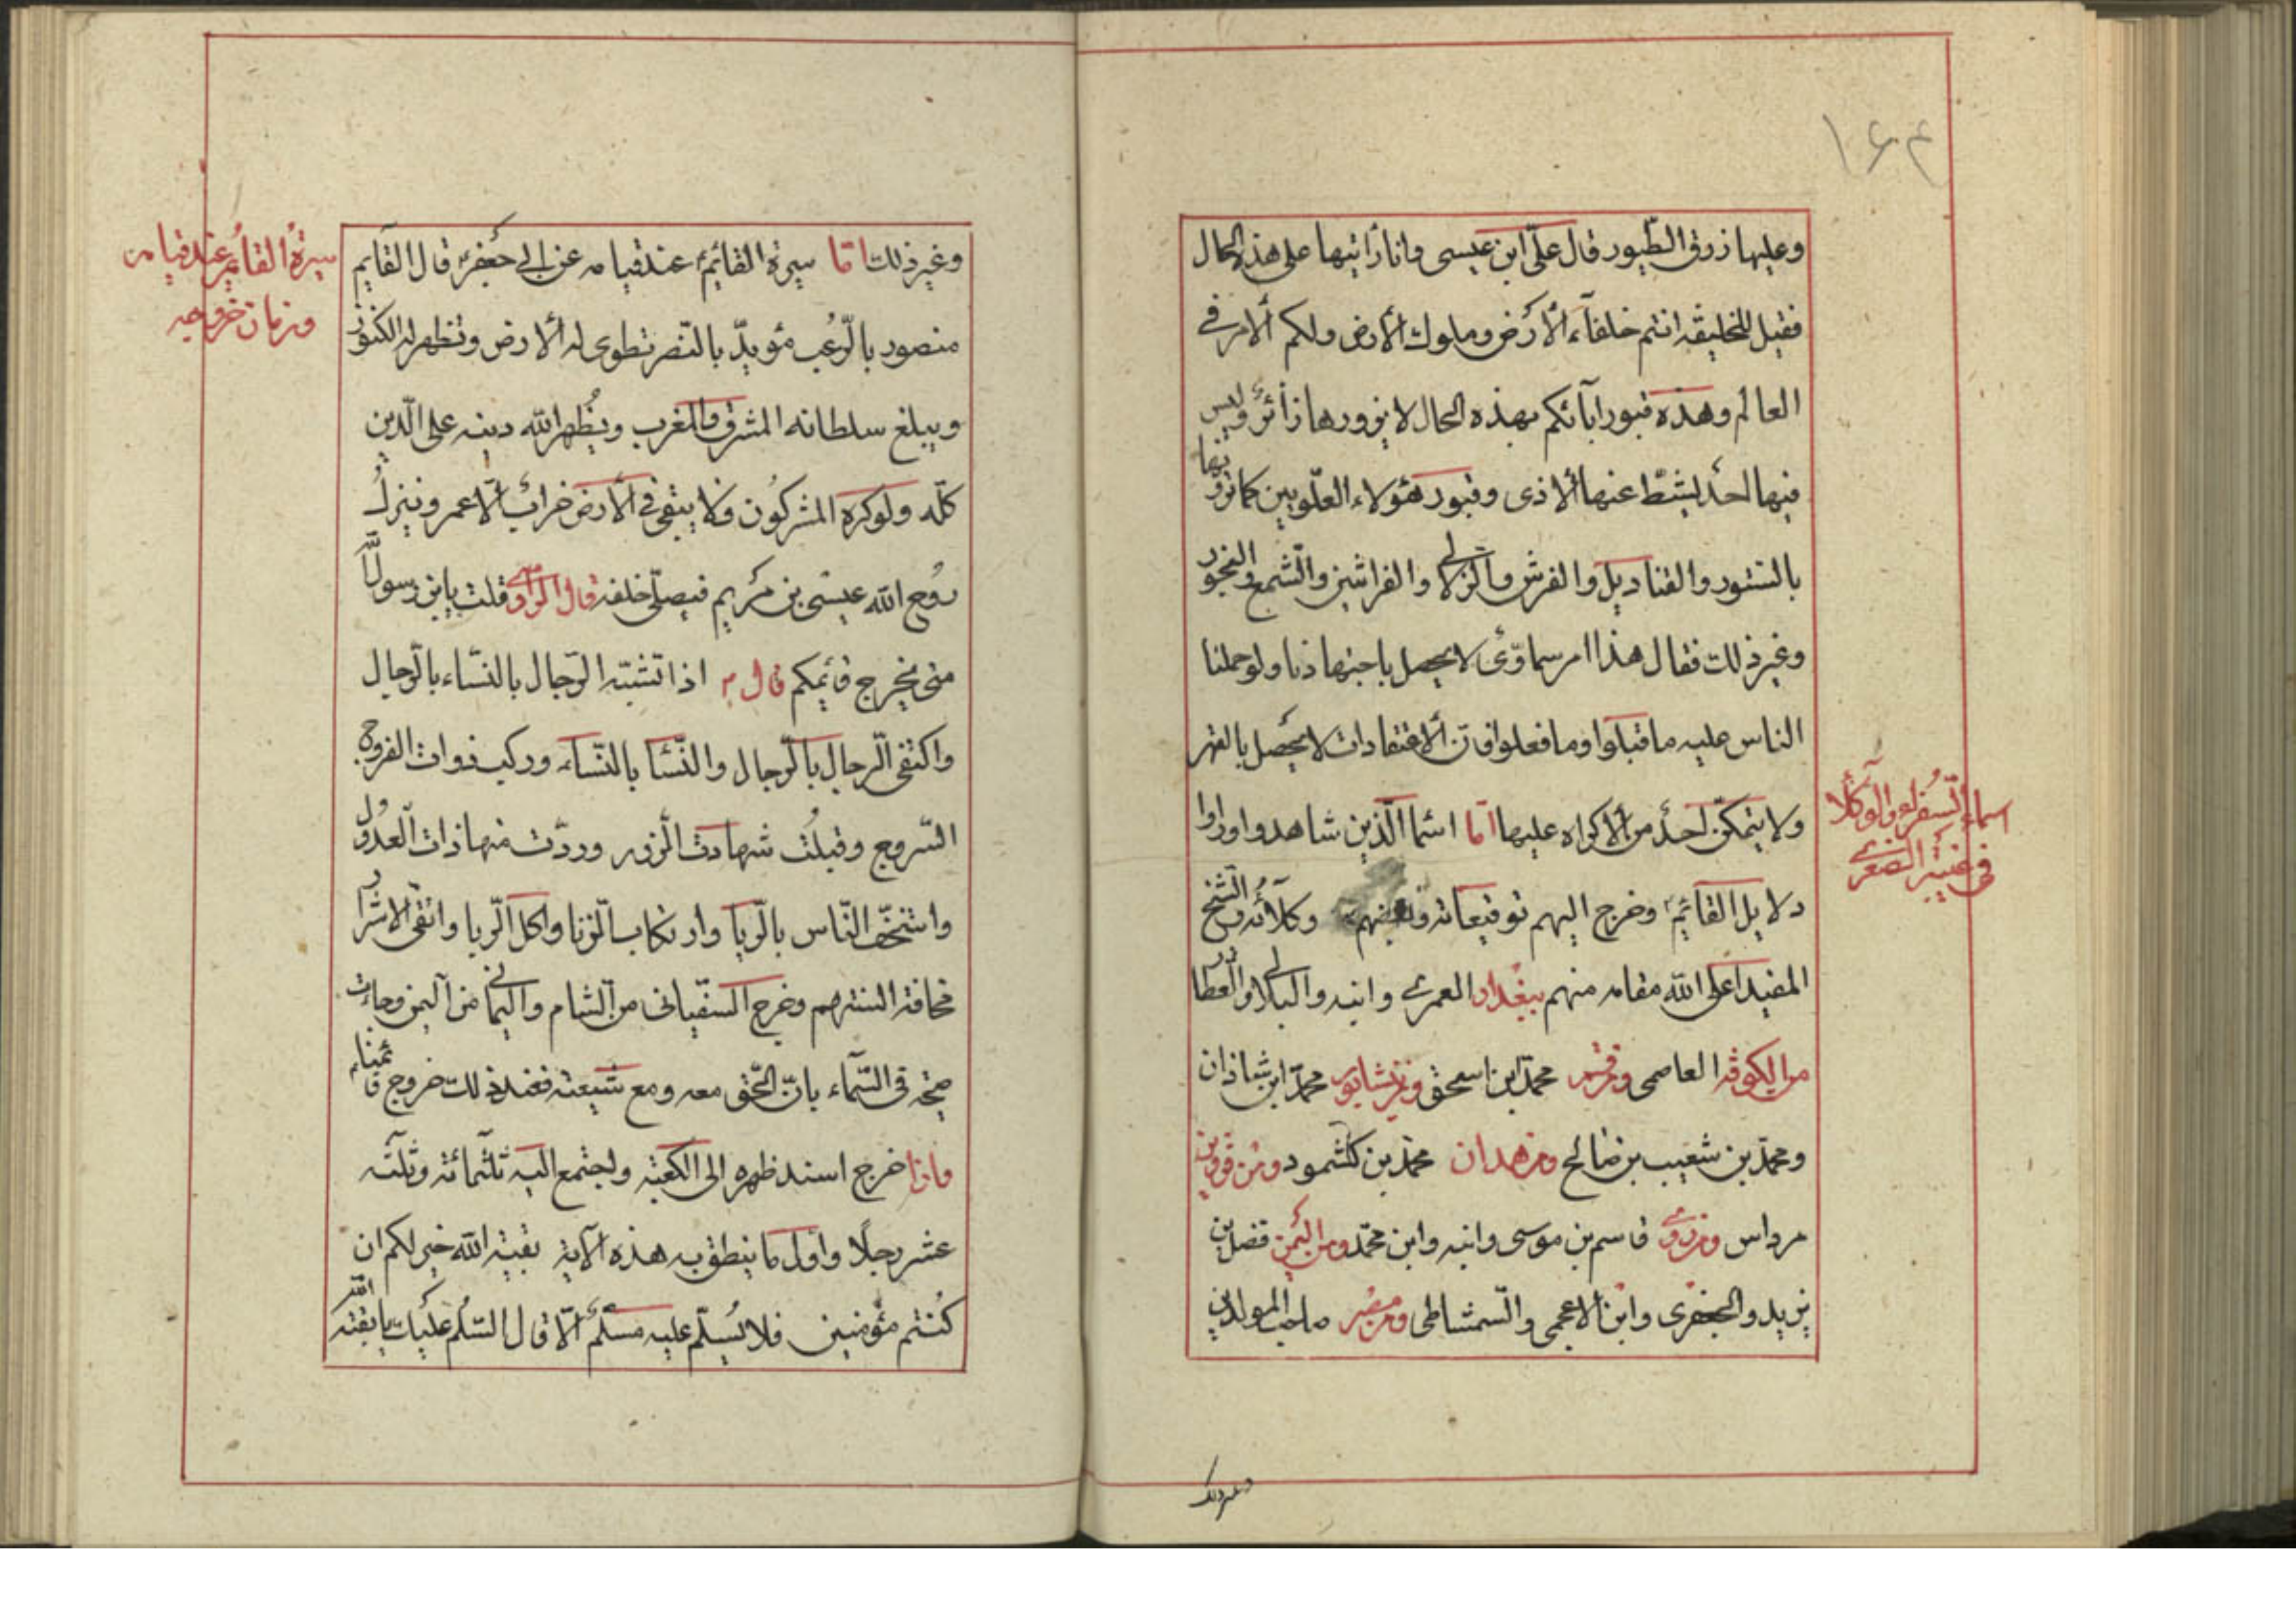 ۱۶۴
وعليها زرق الطيور قال علىّ ابن عيسى وانا رأيتها على هذه الحال
فقيل للخليفه انتم خلفآء الأرض وملوك الأرض ولكم ألامر فى
العالم وهذه قبور آبائكم بهذه الحال لا يزورها زائر وليس
فيها احد يشطّ عنها ألاذى وقبور هؤلاء العلّويين كما ترونها
بالستور والقناديل والفرش والزلالى والفراشين والشّمع والبخور
وغير ذلك فقال هذا امر سماوّى لا يحصل باجتهادنا ولو حملنا
الناس عليه ما قبلوا وما فعلوا فانّ ألاعتقادات لا يحصل بالقهر
ولا يتمكّن احد من ألاكراه عليها امّا اسما الّذين شاهدوا وراوا
اسماء السفراء والوكلا
فى غيبة الصغرى
دلايل القائم وخرج اليهم توقيعاته وبعضهم وكلآئه والشيخ
المفيد اعلى الله مقامه منهم ببغداد العمرى وابنه والبلالى والعطار
من الكوفة العاصمى ومن قم محمد ابن اسحق ومن نيشابور محمد ابن شاذان
ومحمد بن شعيب بن صالح ومن همدان محمد بن كشمود ومن قزوين
مرداس ومن رى قاسم بن موسى وابنه وابن محمد ومن اليمن فضل بن
يزيد والجعفرى وابن الاعجمى والشمشاطى ومن مصر صاحب المولدين
وغير ذلك
وغير ذلك امّا سيرة القائم عند قيامه عن ابى جعفر قال القآيم
سيرة القائم عند قيامه
وزمان خروجه
منصور بالرّعب مؤيدّ بالنّصر تطوى له ألارض وتظهر له الكنوز
ويبلغ سلطانه المشرق والمغرب ويُظهر الله دينه على الّدين
كلّه ولو كره المشركون فلا يبقى فى الأرض خراب ألّا عمر وينزل
رُوح الله عيسى بن مريم فيصلّى خلفه قال الراوى قلت يابن رسول الله
متى يخرج قائمكم قال م اذا تشبّه الرّجال بالنسّاء بالرّجال
واكتفى الّرجال بالّرجال والنّسا بالنّساء وركب ذوات الفروج
السّروج وقبلُت شهادت الّزور وردّت منها ذات الّعدول
واستخّف النّاس بالّريا وارتكاب الّزنا واكل الّربا واتقى الاشرار
مخافة السنتهم وخرج السفّيانى من الّشام واليمانى من آليمن وجاءت
صيحة فى السّمآء بانّ الحّق معه ومع شيعته فعند ذلك خروج قائمنا
فاذا خرج اسند ظهره الى الكعبة واجتمع اليه ثلثمائة وثلثه
عشر رجلًا واول ما ينطق به هذه الآية بقية الله خير لكم ان
كُنتم مؤمنين فلا يُسلّم عليه مسلّم الّا قال السّلم عليك يا بقية الله